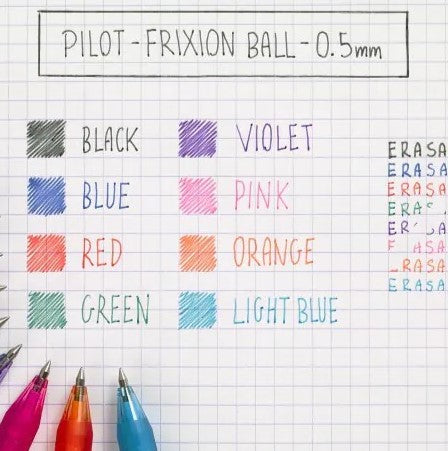 PILOT - FRIXION BALL - 0.5mm
BLACK
BLUE
RED
GREEN
VIOLET
PINK
ORANGE
LIGHT BLUE
ERASA
ERASA
ERASA
ERASA